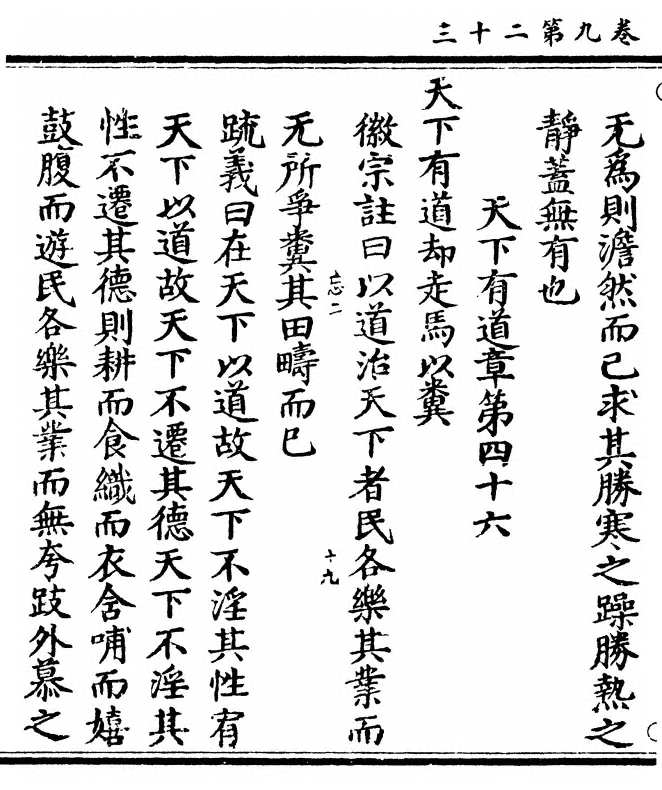 三十二第九卷
无爲則澹然而已求其勝寒之躁勝熱之
靜蓋無有也
天下有道章第四十六
天下有道却走馬以糞
徽宗註曰以道治天下者民各樂其業而
无所爭糞其田疇而已
忘二
十九
疏義曰在天下以道故天下不淫其性宥
天下以道故天下不遷其德天下不淫其
性不遷其德則耕而食織而衣含哺而嬉
鼓腹而遊民各樂其業而無夸跂外慕之